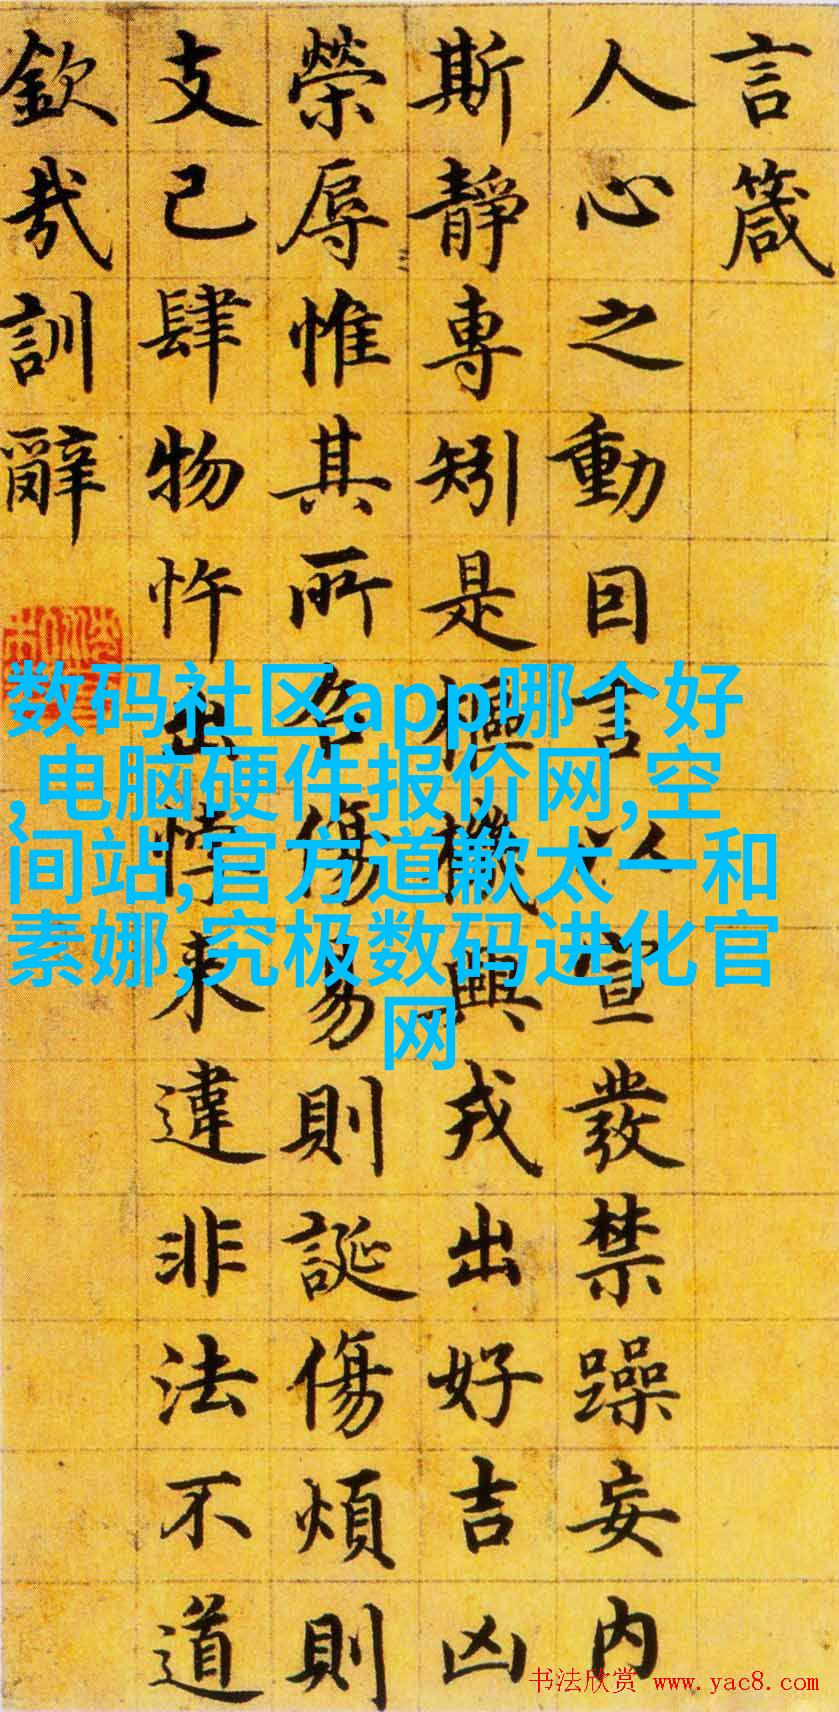 言箴
人心之動因言以宣發禁躁妄内
斯靜專矧是樞機興戎出好吉凶
榮辱惟其所召傷易則誕傷煩則
支己肆物忤出悖來違非法不道
欽哉訓辭
数码社区app哪个好
,电脑硬件报价网,空
间站,官方道歉太一和
素娜,究极数码进化官
网
书法欣赏 www.yac8.com